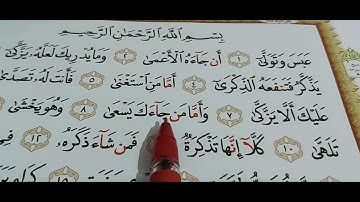 بِسْمِ اللَّهِ الرَّحْمَٰنِ الرَّحِيمِ
عَبَسَ وَتَوَلَّىٰ ١ أَن جَاءَهُ الْأَعْمَىٰ ٢ وَمَا يُدْرِيكَ لَعَلَّهُ يَزَّكَّىٰ
يَذَّكَّرُ فَتَنفَعَهُ الذِّكْرَىٰ ٤ أَمَّا مَنِ اسْتَغْنَىٰ ٥ فَأَنتَ لَهُ تَصَدَّىٰ
عَلَيْكَ أَلَّا يَزَّكَّىٰ ٧ وَأَمَّا مَن جَاءَكَ يَسْعَىٰ ٨ وَهُوَ يَخْشَىٰ
تَلَهَّىٰ ١٠ كَلَّا إِنَّهَا تَذْكِرَةٌ فَمَن شَاءَ ذَكَرَهُ ١٢